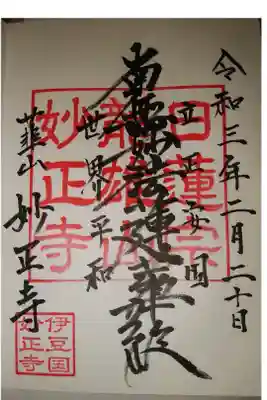 令和三年二月二十日
立正安国
南無妙法蓮華経
世界平和
韮山 妙正寺
日蓮宗
妙正寺
伊豆国
妙正寺